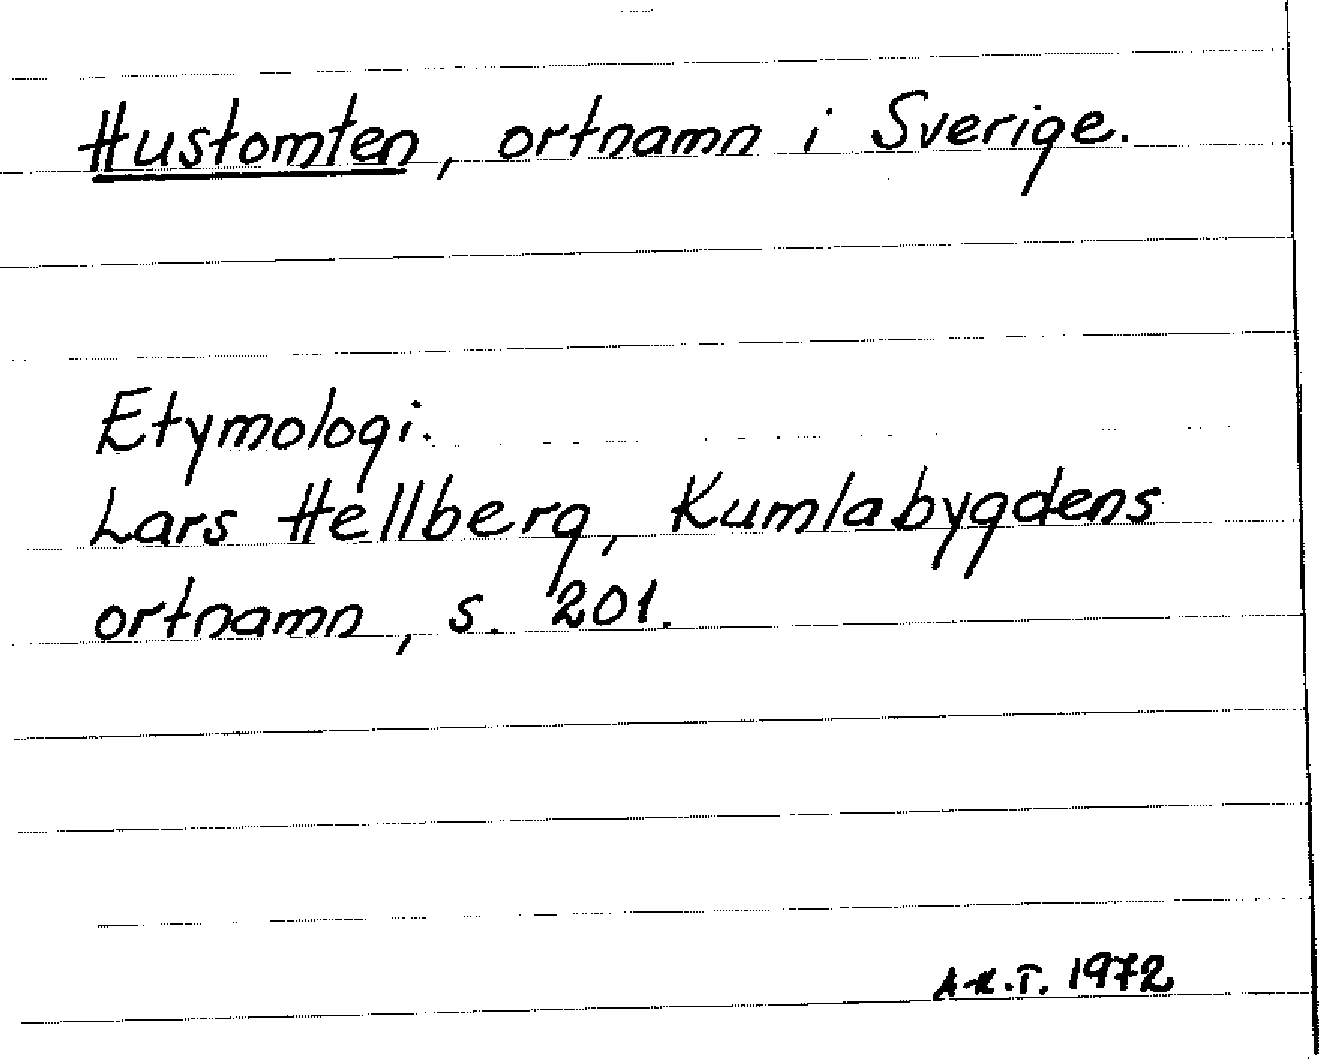 Hustomten, ortnamn i Sverige.
Etymologi.
Lars Hellberg, Kumlabygdens
ortnamn, s. 201.
A-K.T. 1972